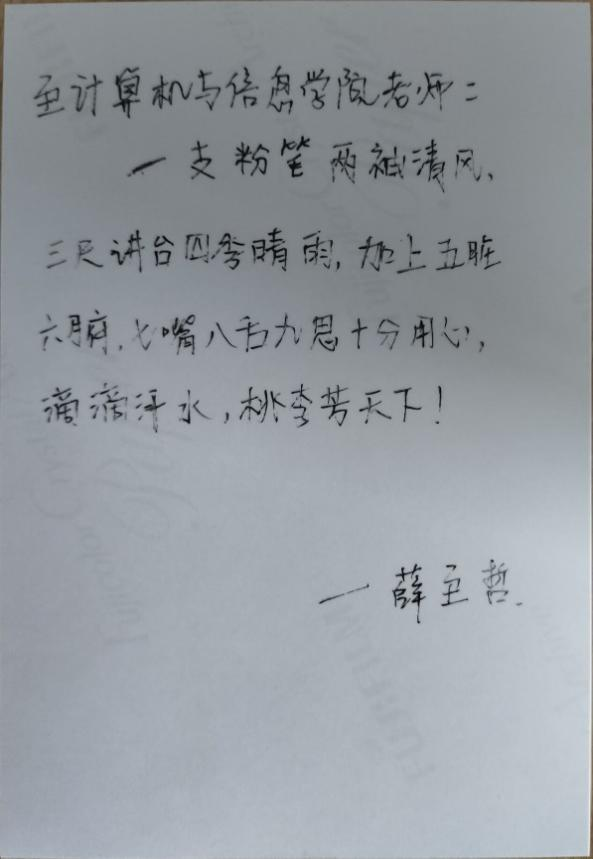 至计算机与信息学院老师：
一支粉笔两袖清风、
三尺讲台四季晴雨，加上五脏
六腑、七嘴八舌九思十分用心，
滴滴汗水，桃李芳天下！
— 薛至哲